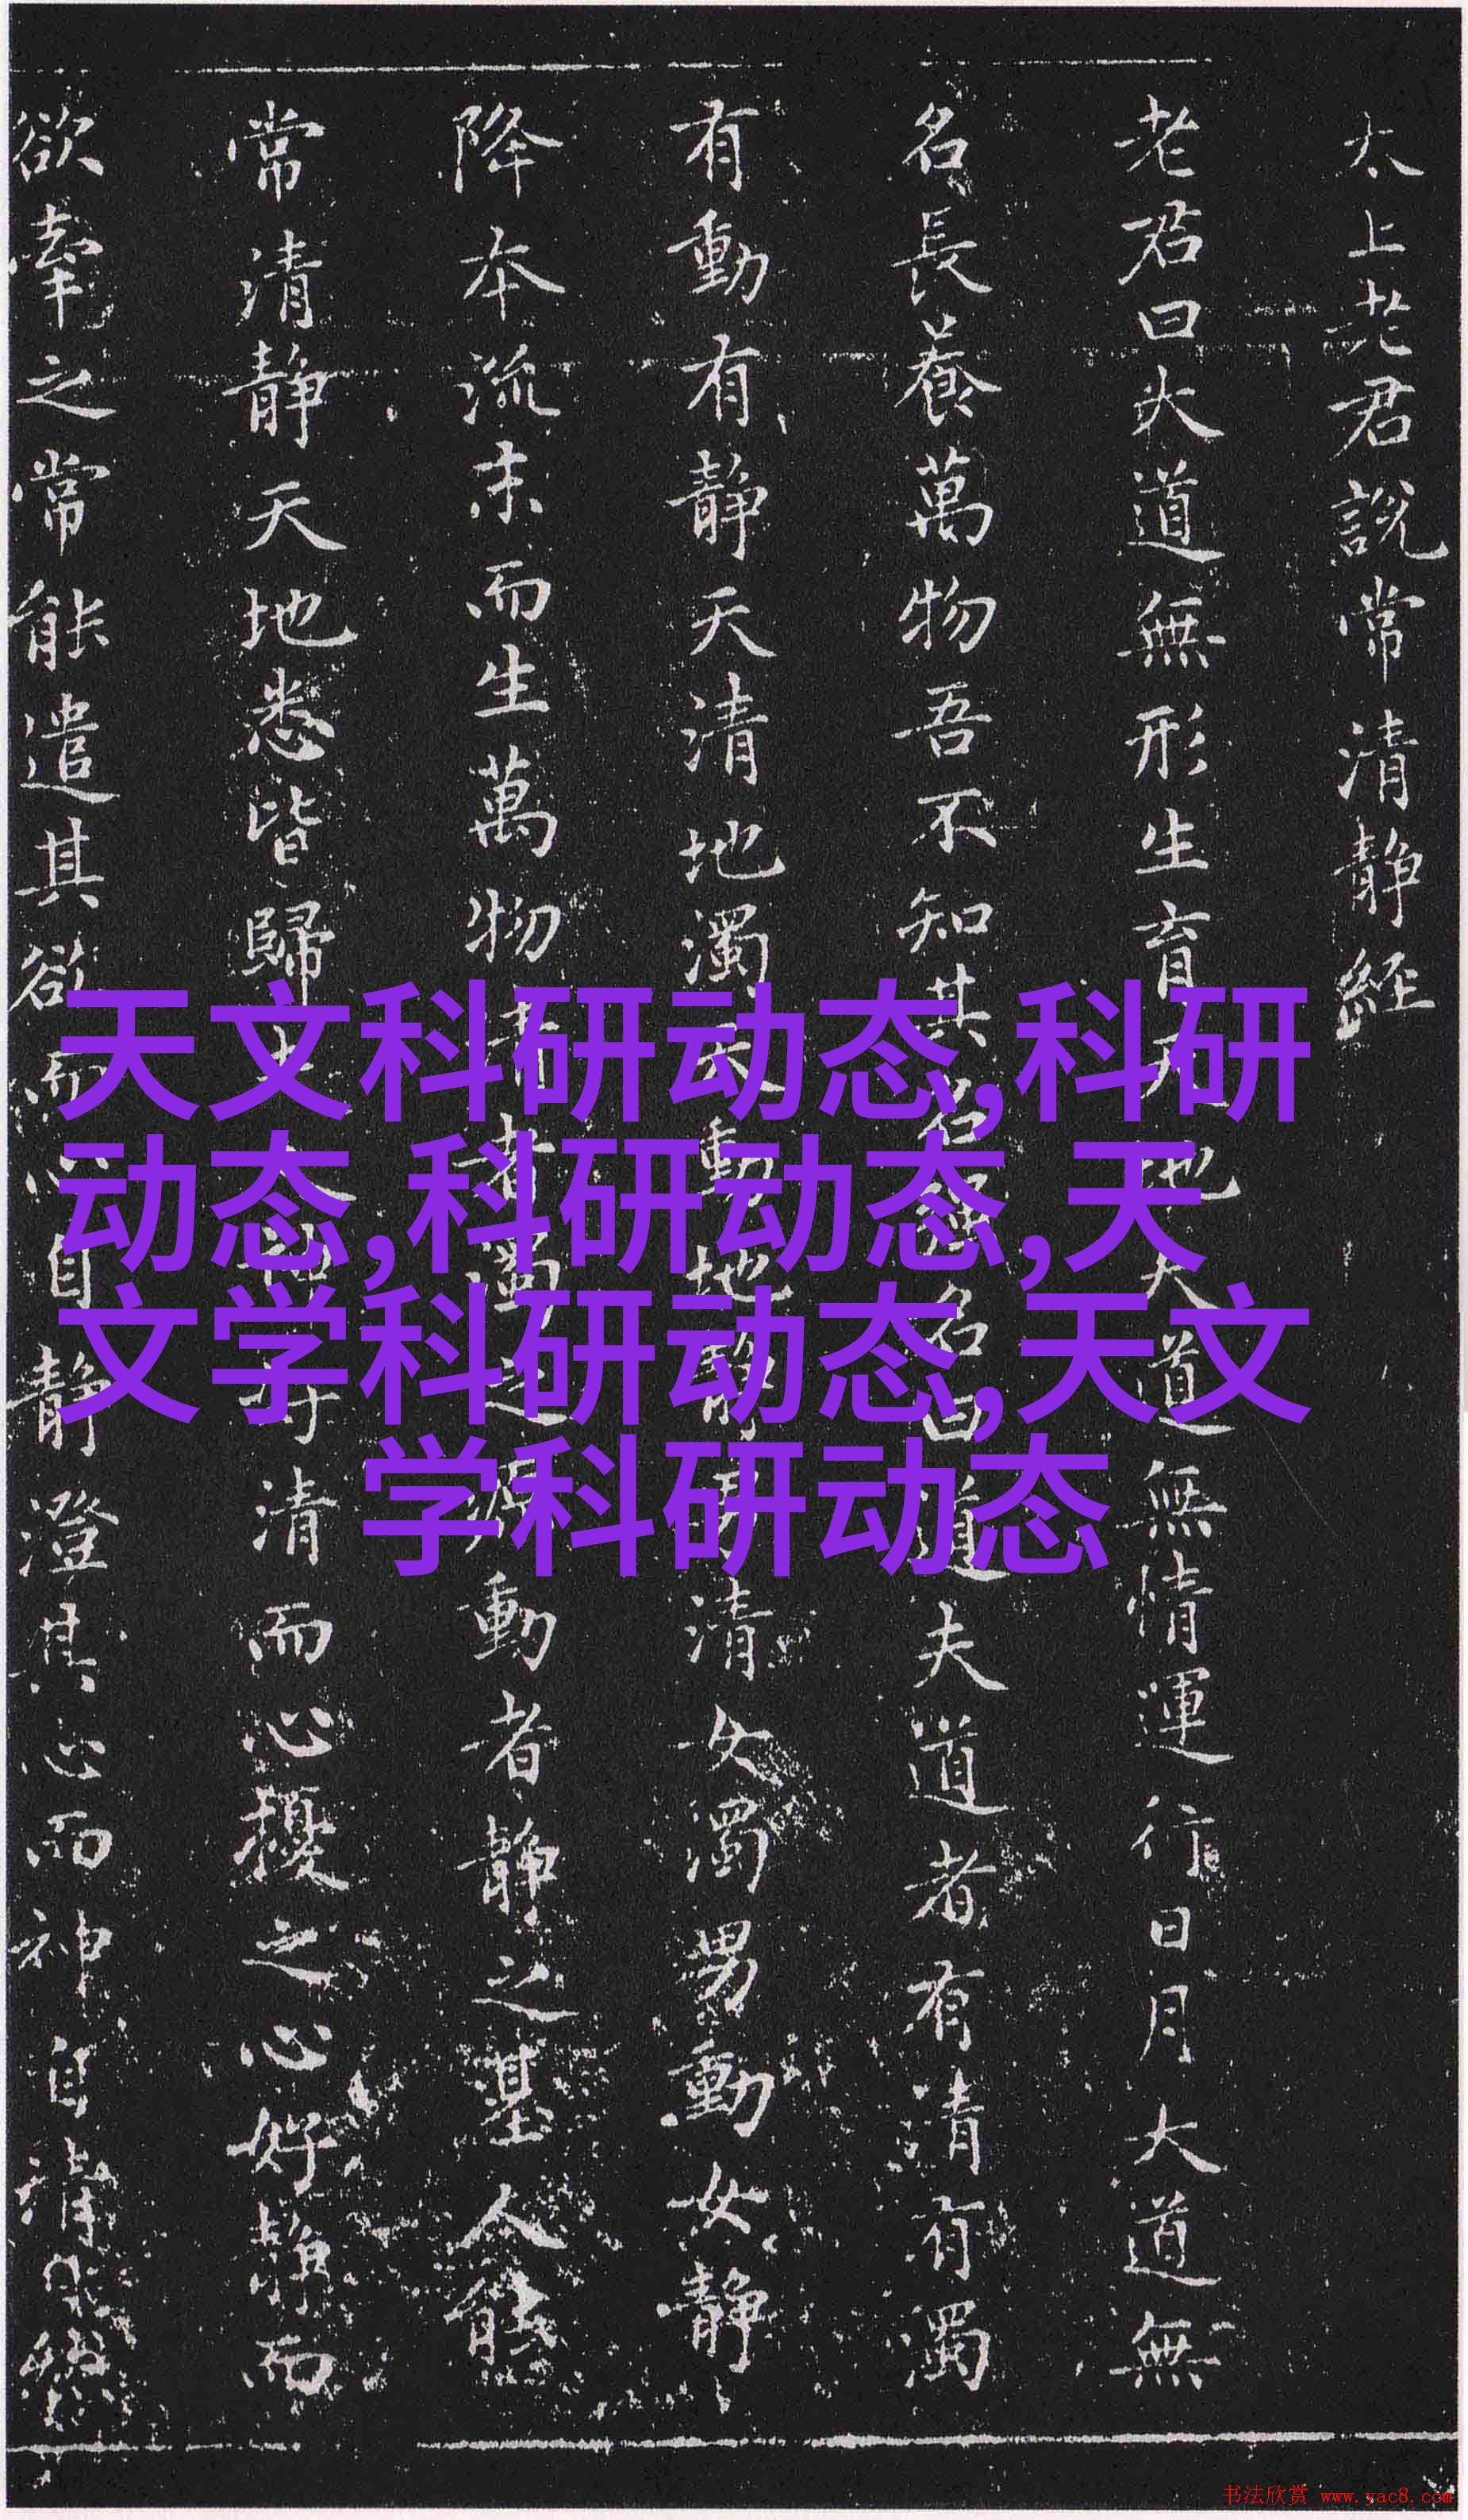 太上老君說常清静經
老君曰大道無形生育天地大道無情運行日月大道無
名長養萬物吾不知其名强名曰道夫道者有清有濁
有動有静天清地濁天動地静男清女濁男動女静
降本流末而生萬物清者濁之源動者静之基人能
常清静天地悉皆歸而心擾之心好静而
欲牽之常能遣其欲而心自静澄其心而神自清
天文科研动态,科研
动态,科研动态,天
文学科研动态,天文
学科研动态
书法欣赏 www.yac8.com